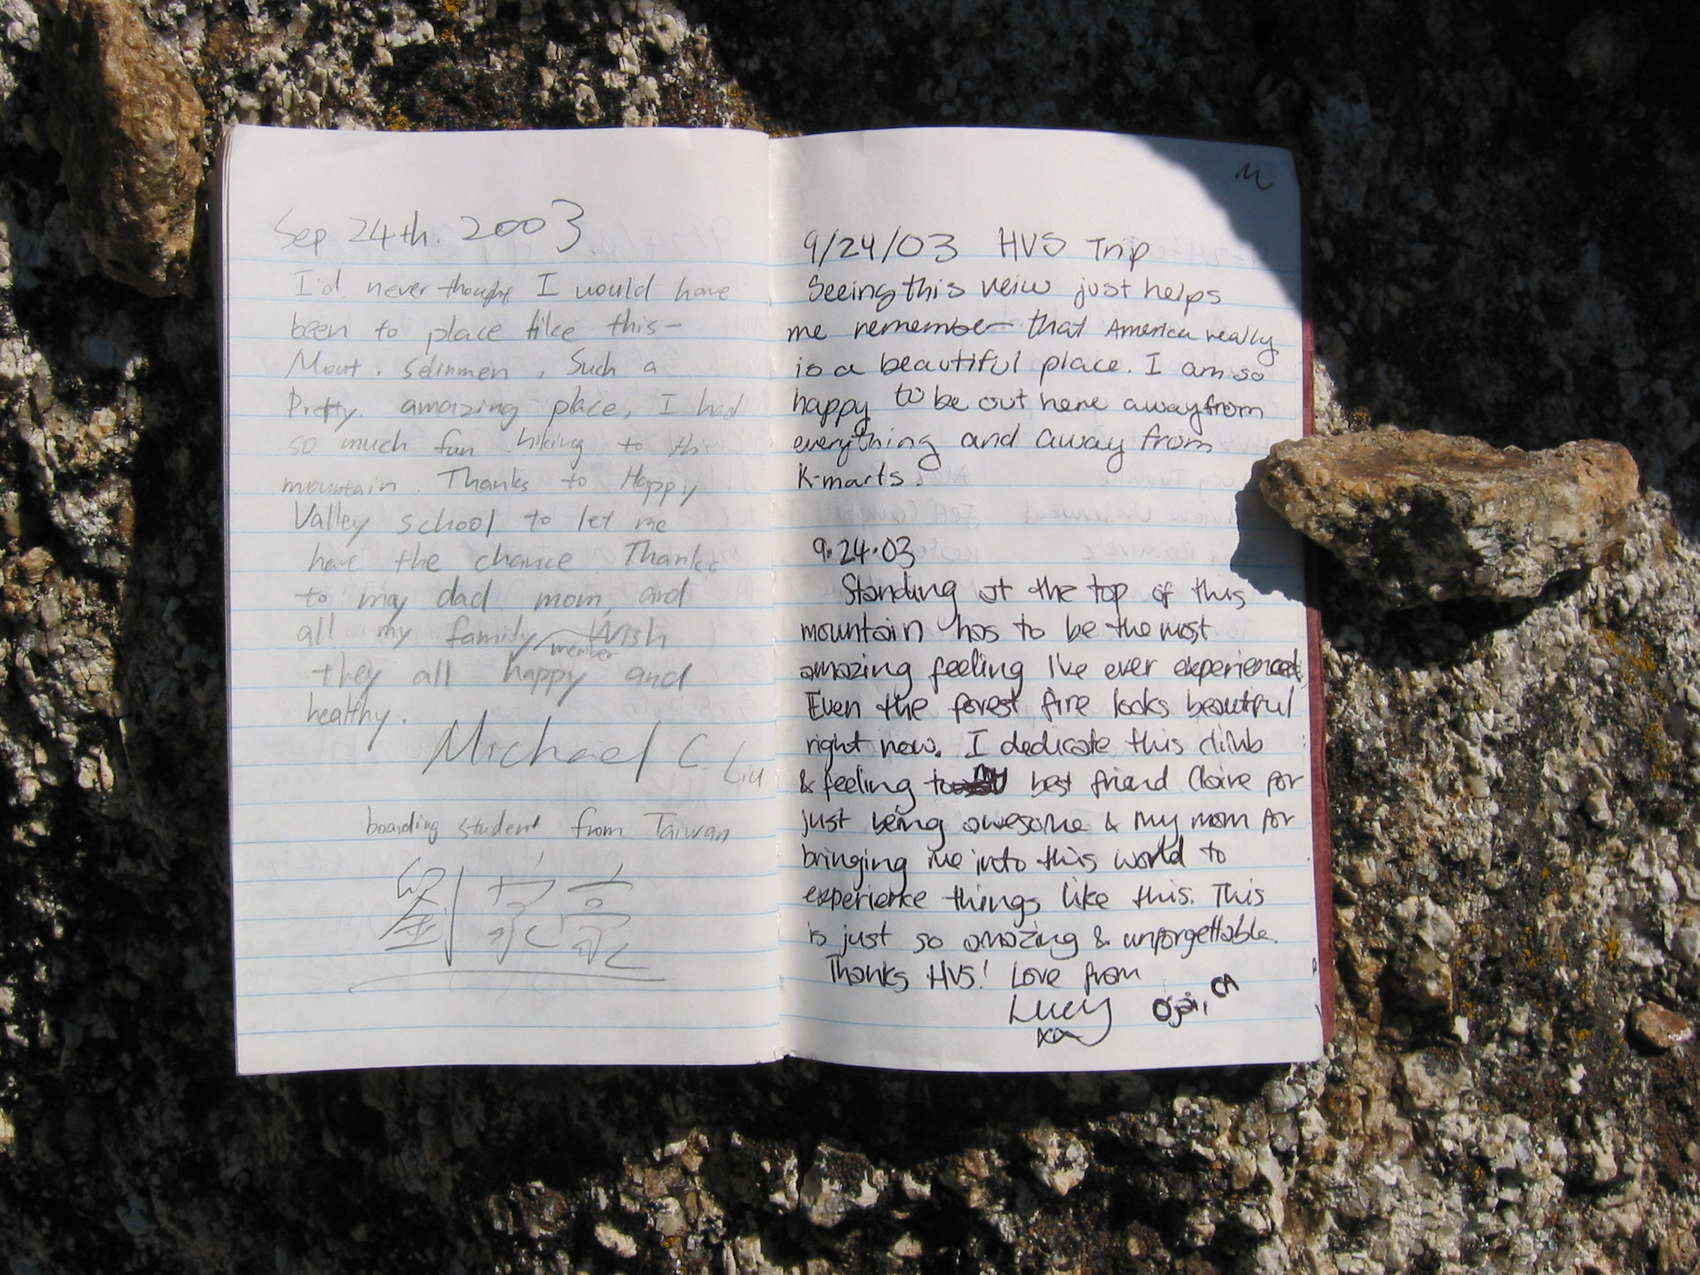 Sep 24th. 2003.
I'd never thought I would have
been to place like this-
Mout. Selinmen, Such a
Pretty. amazing place, I had
so much fun hiking to this
mountain. Thanks to Happy
Valley school to let me
have the chance. Thanks
to my dad, mom, and
all my family member Wish
they all happy and
healthy.
Michael C. Liu
boarding student from Taiwan
劉
M
9/24/03 HVS Trip
Seeing this veiw just helps
me remember that America really
is a beautiful place. I am so
happy to be out here away from
everything and away from
K-marts.
9.24.03
Standing at the top of this
mountain has to be the most
amazing feeling I've ever experienced,
Even the forest fire looks beautiful
right now. I dedicate this climb
& feeling to best friend Claire for
just being awesome & my mom for
bringing me into this world to
experience things like this. This
is just so amazing & unforgettable.
Thanks HVS! Love from
Lucy Ojai, CA